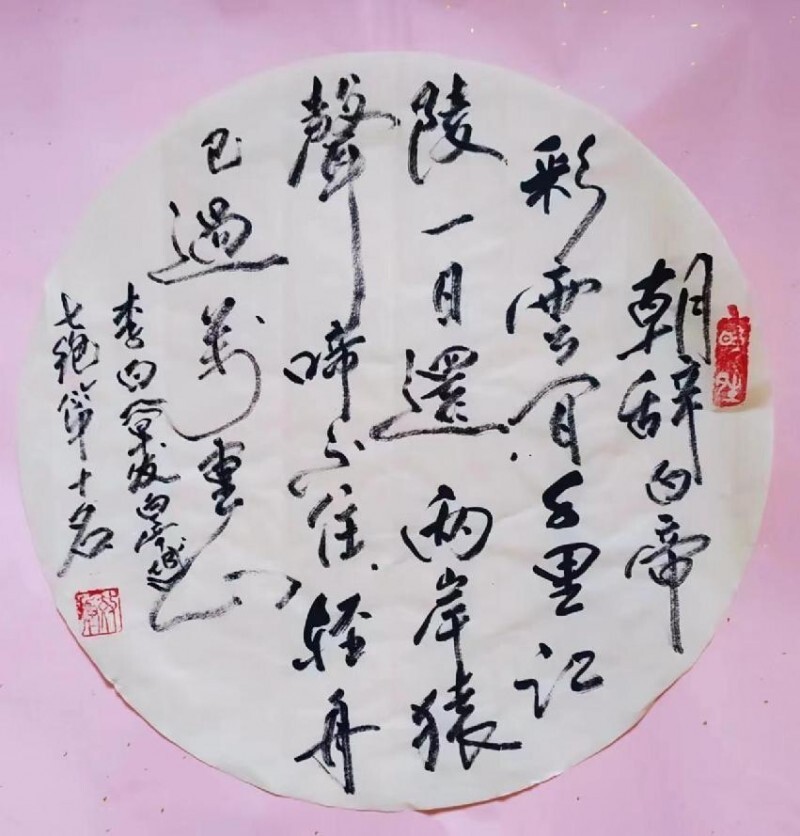 朝辞白帝
彩雲間千里江
陵一日還两岸猿
聲啼不住轻舟
已過萬重山
李白早发白帝城
七绝第十名